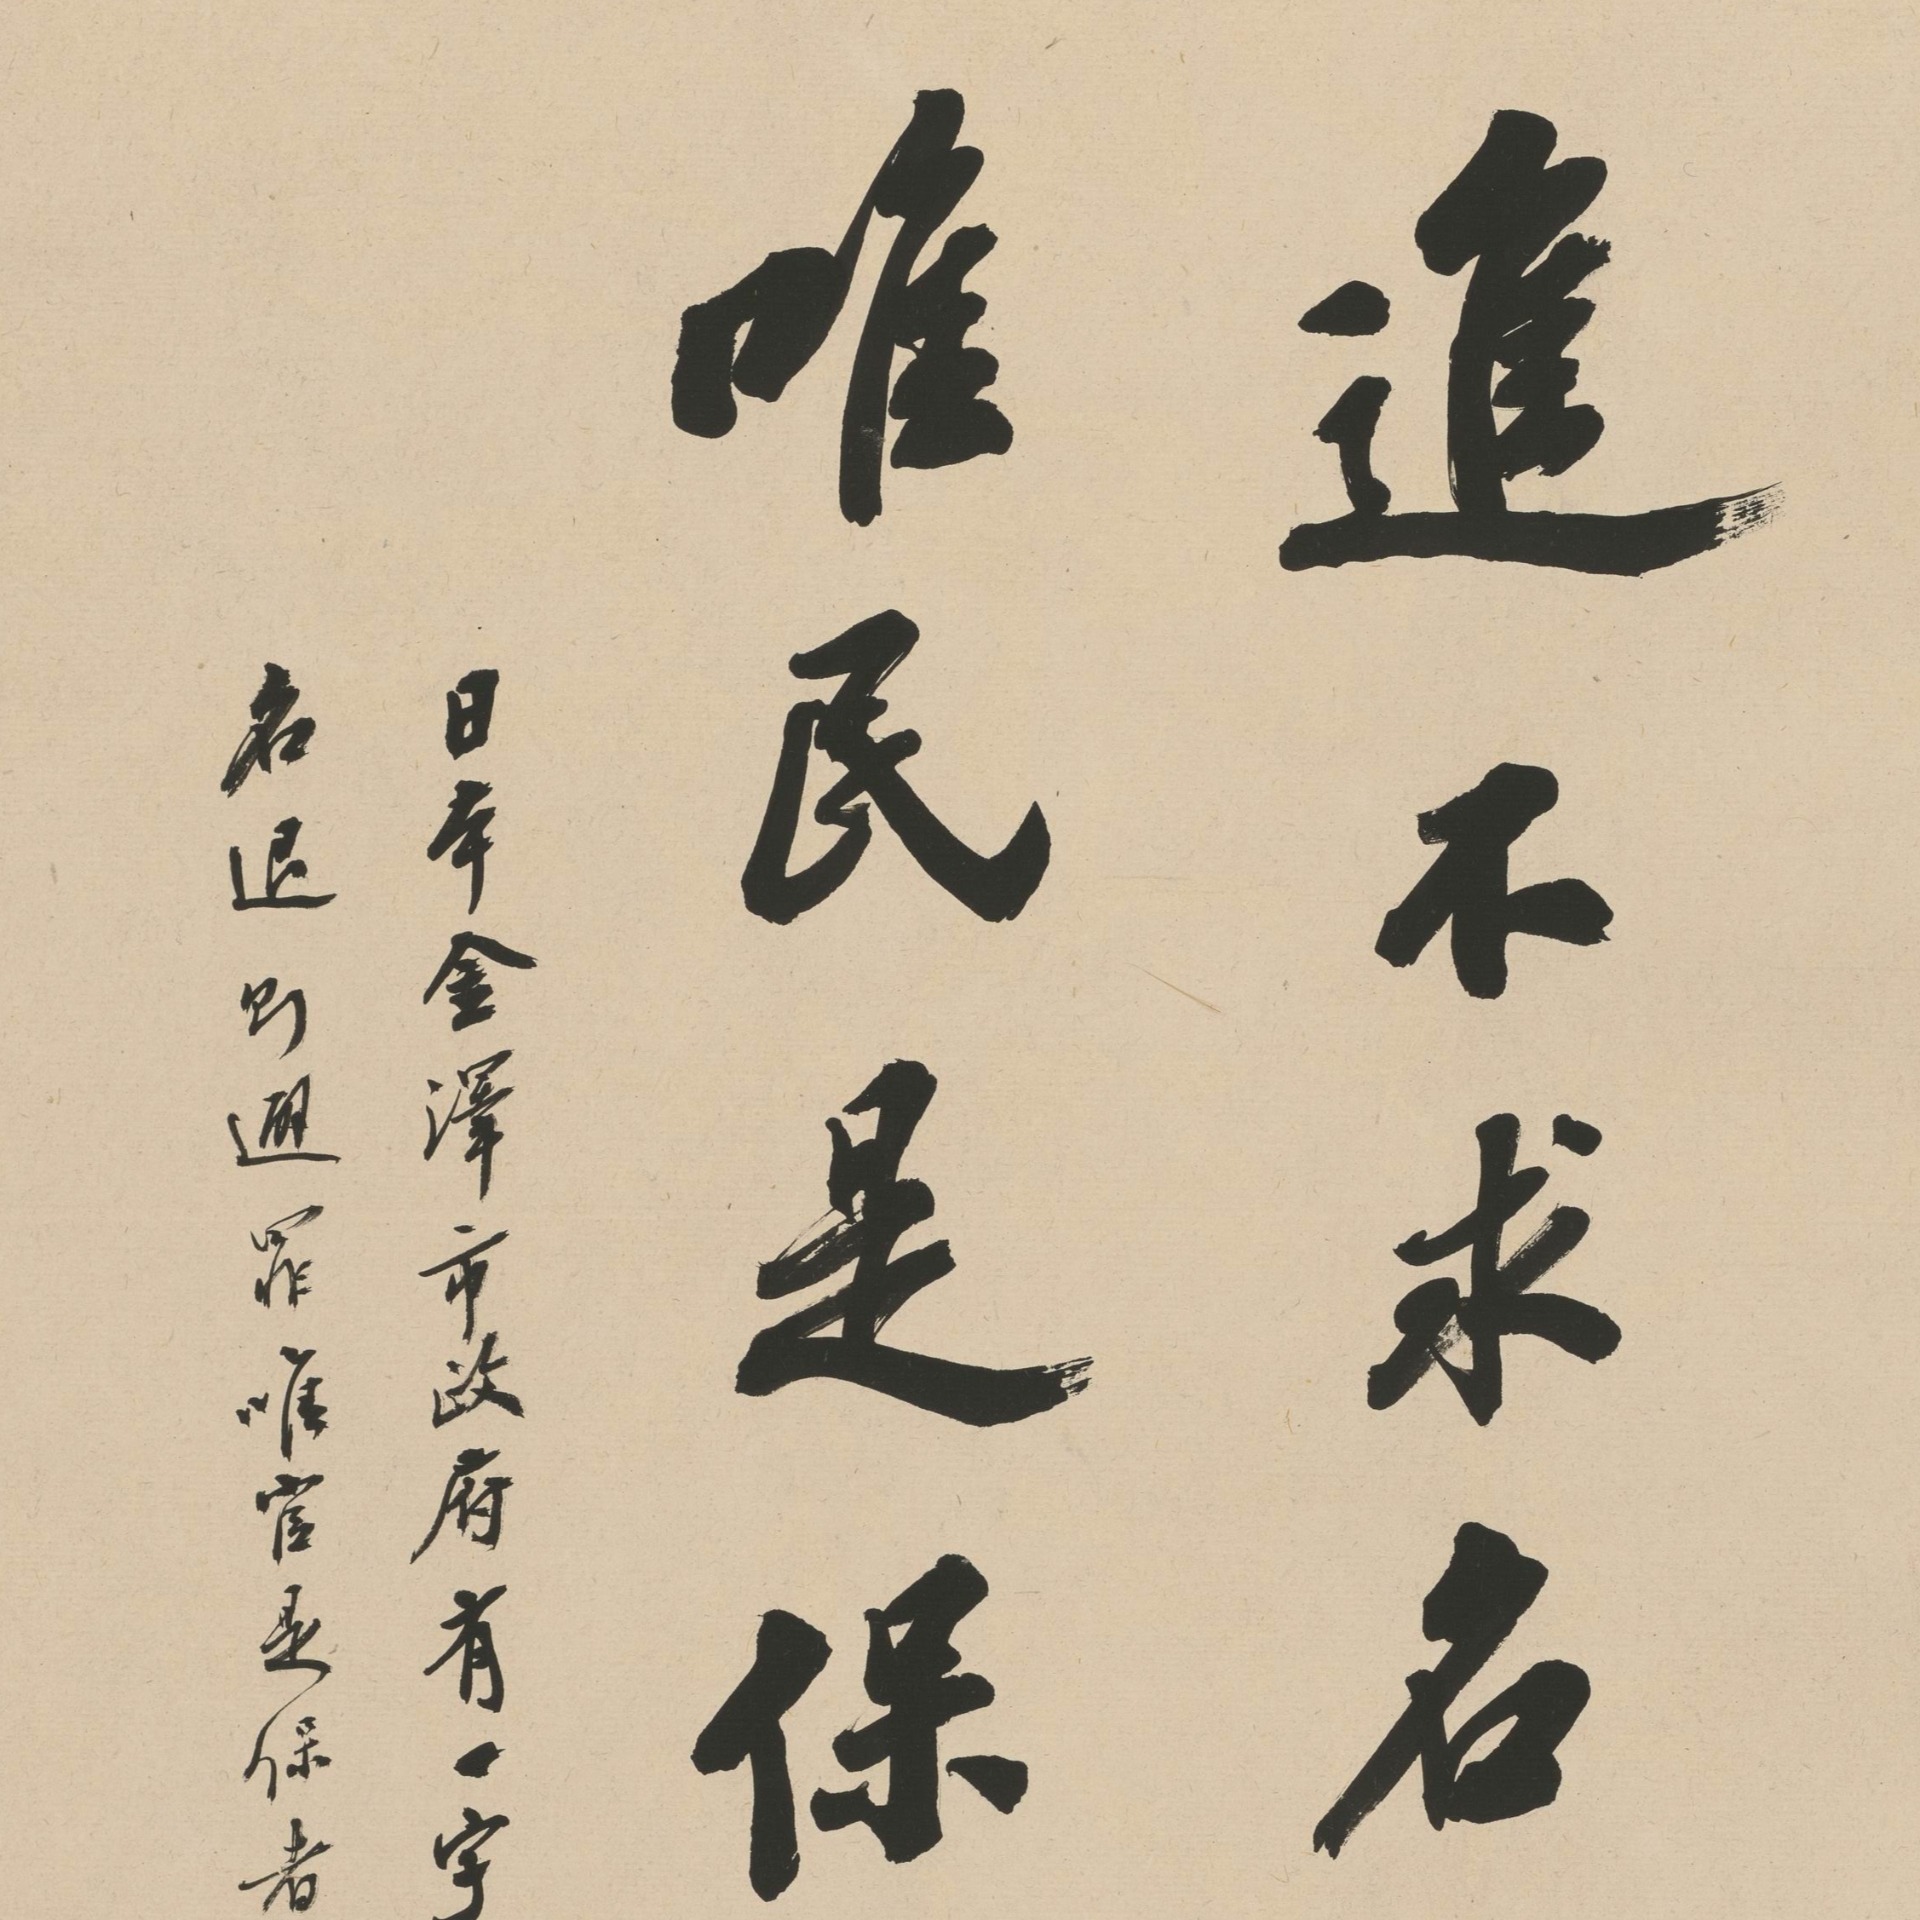 進不求名
唯民是保
日本金澤市政府有一字
名退則避罪唯官是保者